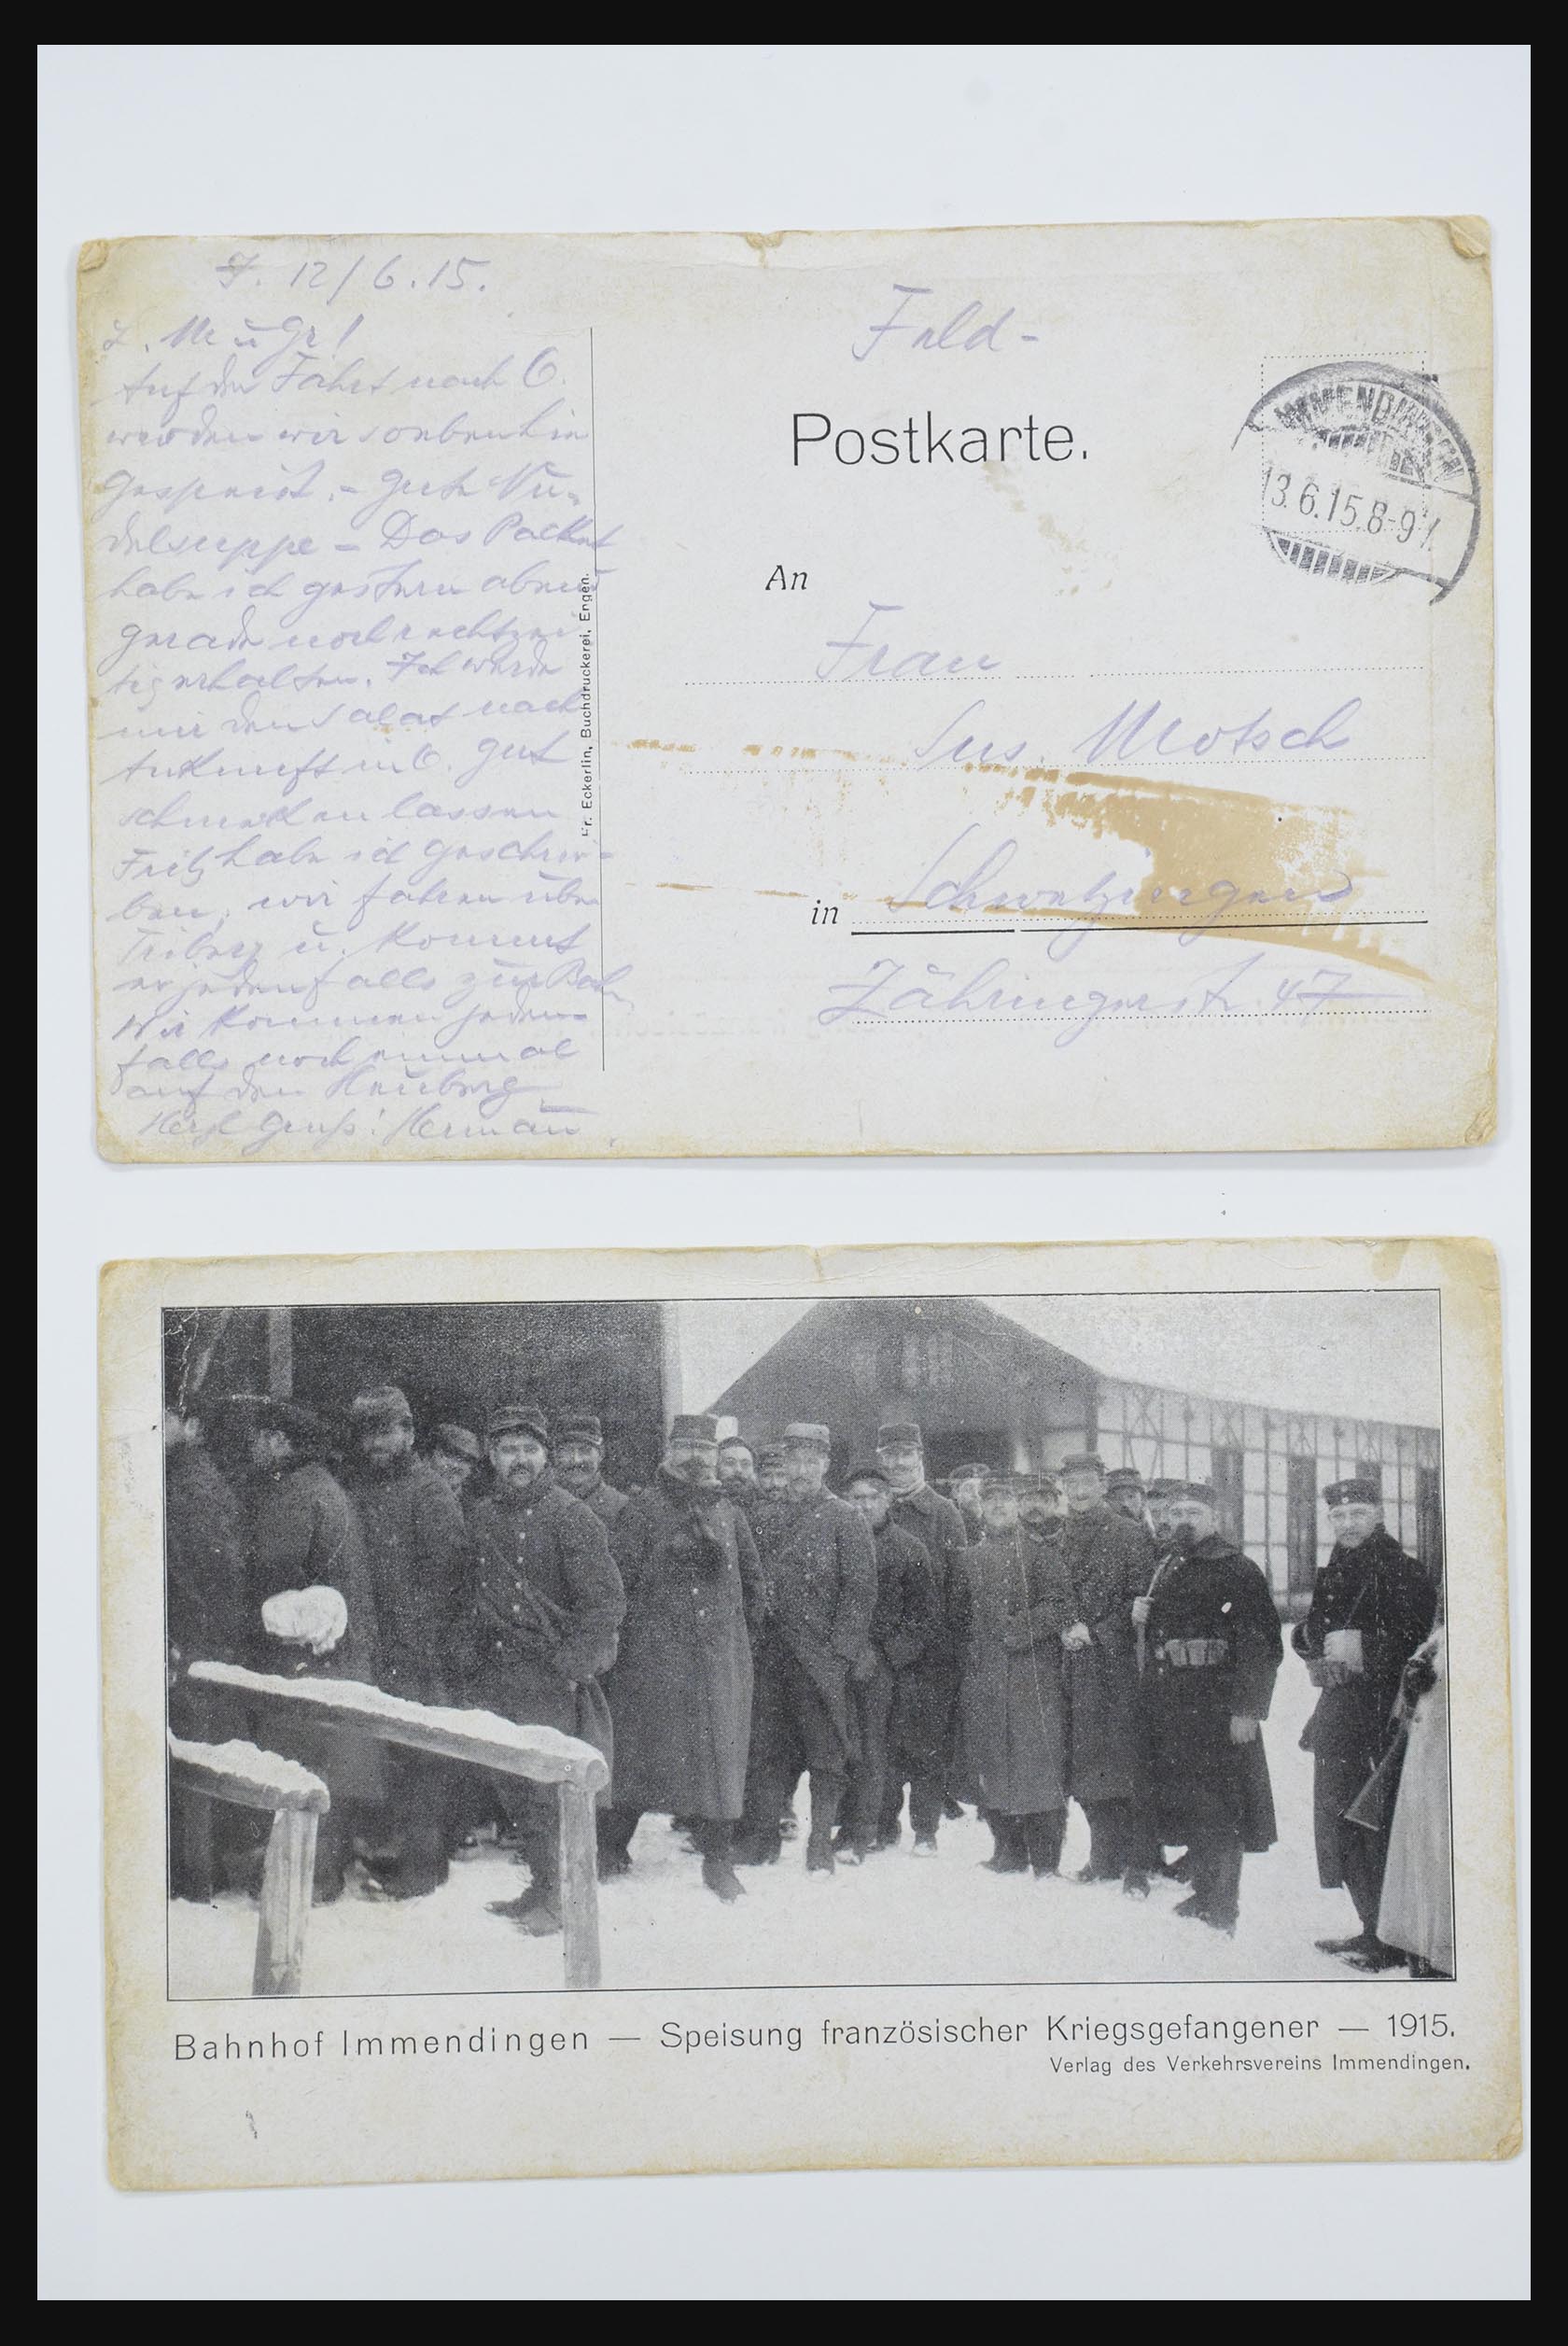 J. 12/6.15.
L. M. u Gr!
Auf der Fahrt nach O.
werden wir soeben hier
gespeist. - gute Nu-
delsuppe - Das Packet
habe ich gestern abend
gerade noch rechtzei
tig erhalten. Ich werde
mir den Salat nach
Ankunft in O. gut
schmecken lassen
Fritz habe ich geschrie-
ben, wir fahren über
Triberg u. kommt
er jedenfalls zur Bah
Wir kommen jeden-
falls noch einmal
auf den Heuberg
Herzl Gruß! Hermañ.
Fr. Eckerlin, Buchdruckerei, Engen.
Feld-
Postkarte.
IMMENDINGEN
13.6.15.8-9
An
Frau
Sus. Motsch
in Schwetzingen
Zähringerstr. 47
Bahnhof Immendingen — Speisung französischer Kriegsgefangener — 1915.
Verlag des Verkehrsvereins Immendingen.